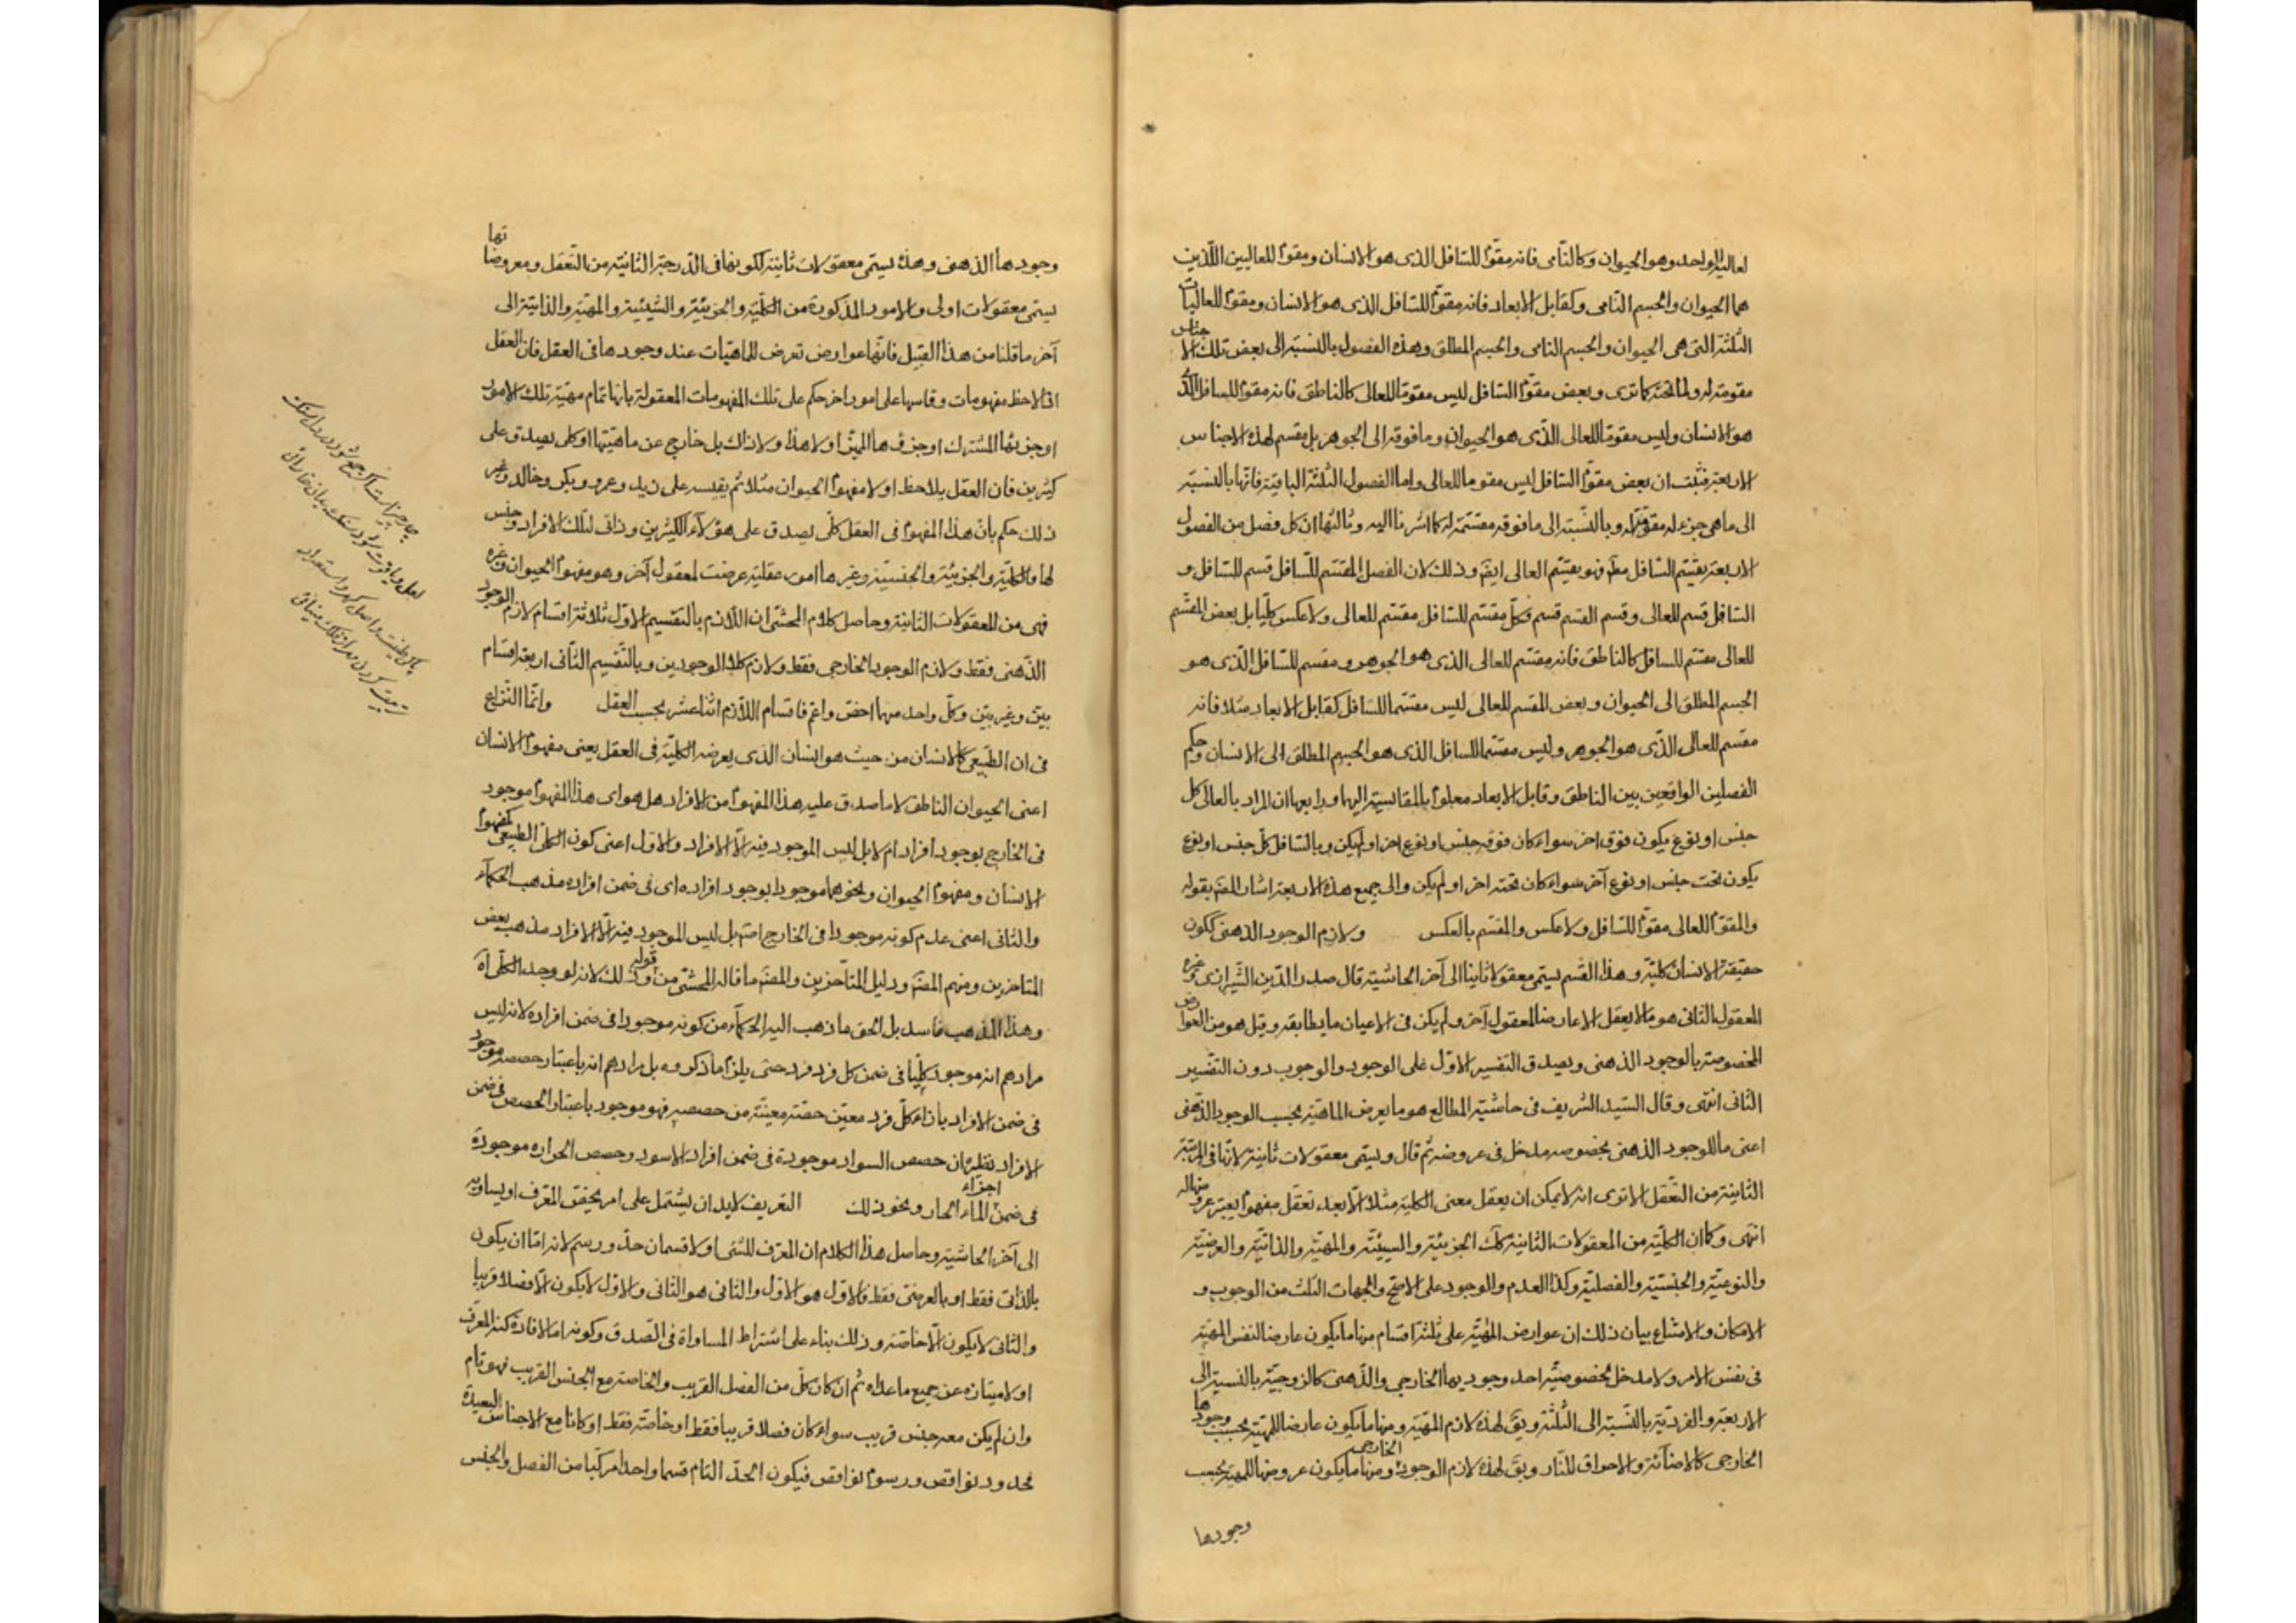 لعالیه الواحد وهو الحیوان وکالنامی فانه مقوم للسافل الذی هو الانسان ومقوم للعالیین اللذین
هما الحیوان والجسم النامی وکقابل الابعاد فانه مقوم للسافل الذی هو الانسان ومقوم للعالیات
الثلثة التی هی الحیوان والجسم النامی والجسم المطلق وهذه الفصول بالنسبة الی بعض تلک الاجناس
مقومة له ولما تحته کما تری وبعض مقوم السافل لیس مقوما للعالی کالناطق فانه مقوم للسافل الذی
هو الانسان ولیس مقوما للعالی الذی هو الحیوان وما فوقه الی الجوهر بل مقسم لهذه الاجناس
الاربعة فثبت ان بعض مقوم السافل لیس مقوما للعالی واما الفصول الثلثة الباقیة فانها بالنسبة
الی ما هی جزء له مقومة له وبالنسبة الی ما فوقه مقسمة له کما اشرنا الیه وثالثها ان کل فصل من الفصول
الاربعة یقسم السافل معه فهو یقسم العالی ایضم وذلک لان الفصل المقسم للسافل قسم للسافل و
السافل قسم للعالی وقسم القسم قسم وکل مقسم للسافل مقسم للعالی ولا عکس کلیا بل بعض المقسم
للعالی مقسم للسافل کالناطق فانه مقسم للعالی الذی هو الجوهر ومقسم للسافل الذی هو
الجسم المطلق الی الحیوان وبعض المقسم للعالی لیس مقسما للسافل کقابل الابعاد مثلا فانه
مقسم للعالی الذی هو الجوهر ولیس مقسما للسافل الذی هو الجسم المطلق الی الانسان وحکم
الفصلین الواقعین بین الناطق وقابل الابعاد معلوم بالمقایسة الیها ورابعها ان المراد بالعالی کل
جنس او نوع یکون فوق اخر سواء کان فوقه جنس او نوع اخر او لم یکن وبالسافل کل جنس او نوع
یکون تحت جنس او نوع آخر سواء کان تحته اخر او لم یکن والی جمیع هذه الاربعة اشار المصم بقوله
والمقوم للعالی مقوم للسافل ولا عکس والمقسم بالعکس ولازم الوجود الذهنی ککون
حقیقة الانسان کلیة وهذا القسم یسمی معقولا ثانیا الی آخر الحاشیة قال صدر الدین الشیرازی وغیره
المعقول الثانی هو ما لا یعقل الا عارضا لمعقول آخر ولم یکن فی الاعیان ما یطابقه وقیل هو من العوارض
المخصوصة بالوجود الذهنی ویصدق التفسیر الاول علی الوجود والوجوب دون التفسیر
الثانی انتهی وقال السید الشریف فی حاشیة المطالع هو ما یعرض الماهیة بحسب الوجود الذهنی
اعنی ما للوجود الذهنی بخصوصه مدخل فی عروضه ثم قال ویسمی معقولات ثانیة لانها فی المرتبة
الثانیة من التعقل الا تری انه لا یمکن ان یعقل معنی الکلیة مثلا الا بعد تعقل مفهوم یعتبر عروضها له
انتهی وکما ان الکلیة من المعقولات الثانیة کک الجزئیة والشیئیة والمهیة والذاتیة والعرضیة
والنوعیة والجنسیة والفصلیة وکذا العدم والوجود علی الاصح والجهات الثلث من الوجوب و
الامکان والامتناع بیان ذلک ان عوارض المهیة علی ثلثة اقسام منها ما یکون عارضا لنفس المهیة
فی نفس الامر ولا مدخل لخصوصیة احد وجودیها الخارجی والذهنی کالزوجیة بالنسبة الی
الاربعة والفردیة بالنسبة الی الثلثة ویق لهذه لازم المهیة ومنها ما یکون عارضا للمهیة بحسب وجودها
الخارجی کالاضائة والاحراق للنار ویق لهذه لازم الوجود الخارجی ومنها ما یکون عروضها للمهیة بحسب
وجودها
وجودها الذهنی وهذه یسمی معقولات ثانیة لکونها فی الدرجة الثانیة من التعقل ومعروضاتها
یسمی معقولات اولی والامور المذکورة من الکلیة والجزئیة والشیئیة والمهیة والذاتیة الی
آخر ما قلنا من هذا القبیل فانها عوارض تعرض للماهیات عند وجودها فی العقل فان العقل
اذا لاحظ مفهومات وقاسها علی امور اخر حکم علی تلک المفهومات المعقولة بانها تمام مهیة تلک الامور
او جزئها المشترک او جزؤها الممیز او لا هذا ولا ذاک بل خارج عن ماهیتها او کلی یصدق علی
کثیرین فان العقل یلاحظ اولا مفهوم الحیوان مثلا ثم یقیسه علی زید وعمرو وبکر وخالد وغیر
ذلک حکم بان هذا المفهوم فی العقل کلی یصدق علی هؤلاء الکثیرین وذاتی لتلک الافراد وجنس
لها والکلیة والجزئیة والجنسیة وغیرها امور عقلیة عرضت لمعقول آخر وهو مفهوم الحیوان وغیره
فهی من المعقولات الثانیة وحاصل کلام المحشی ان اللازم بالتقسیم الاول ثلاثة اقسام لازم الوجود
الذهنی فقط ولازم الوجود الخارجی فقط ولازم کلا الوجودین وبالتقسیم الثانی اربعة اقسام
بین وغیر بین وکل واحد منهما اخص واعم فاقسام اللازم اثنا عشر بحسب العقل وانما النزاع
فی ان الطبیعی کالانسان من حیث هو انسان الذی یعرضه الکلیة فی العقل یعنی مفهوم الانسان
اعنی الحیوان الناطق لا ما صدق علیه هذا المفهوم من الافراد هل هو ای هذا المفهوم موجود
فی الخارج بوجود افراده ام لا بل لیس الموجود فیه الا الافراد والاول اعنی کون الکلی الطبیعی کمفهوم
الانسان ومفهوم الحیوان ونحوهما موجودا بوجود افراده ای فی ضمن افراده مذهب الحکماء
والثانی اعنی عدم کونه موجودا فی الخارج اصم بل لیس الموجود فیه الا الافراد مذهب بعض
المتاخرین ومنهم المصنم ودلیل المتأخرین والمصنم ما قاله المحشی من قوله وذلک لانه لو وجد الکلی آه
وهذا المذهب فاسد بل الحق ما ذهب الیه الحکماء من کونه موجودا فی ضمن افراده لانه لیس
مرادهم انه موجود کلیا فی ضمن کل فرد فرد حتی یلزم ما ذکروه بل مرادهم انه باعتبار حصصه موجود
فی ضمن الافراد بازاء کل فرد معین حصة معینة من حصصه فهو موجود باعتبار الحصص فی ضمن
الافراد نظیره ان حصص السواد موجودة فی ضمن افراد الاسود وحصص الحرارة موجودة
فی ضمن اجزاء الماء الحار ونحو ذلک التعریف لابد ان یشتمل علی امر یخفق المعرف او یساویه
الی آخر الحاشیة وحاصل هذا الکلام ان المعرف للشیء اولا قسمان حد ورسم لانه اما ان یکون
بالذاتی فقط او بالعرضی فقط فالاول هو الاول والثانی هو الثانی والاول لایکون الا فصلا قریبا
والثانی لایکون الا خاصة وذلک بناء علی اشتراط المساواة فی الصدق وکونه اما لافادة کنه المعرف
او لامتیازه عن جمیع ما عداه ثم ان کان کل من الفصل القریب والخاصة مع الجنس القریب فهو تام
وان لم یکن معه جنس قریب سواء کان فصلا قریبا فقط او خاصة فقط او کانا مع الاجناس البعیدة
فحدود نواقص ورسوم نواقص فیکون الحد التام قسما واحدا مرکبا من الفصل والجنس